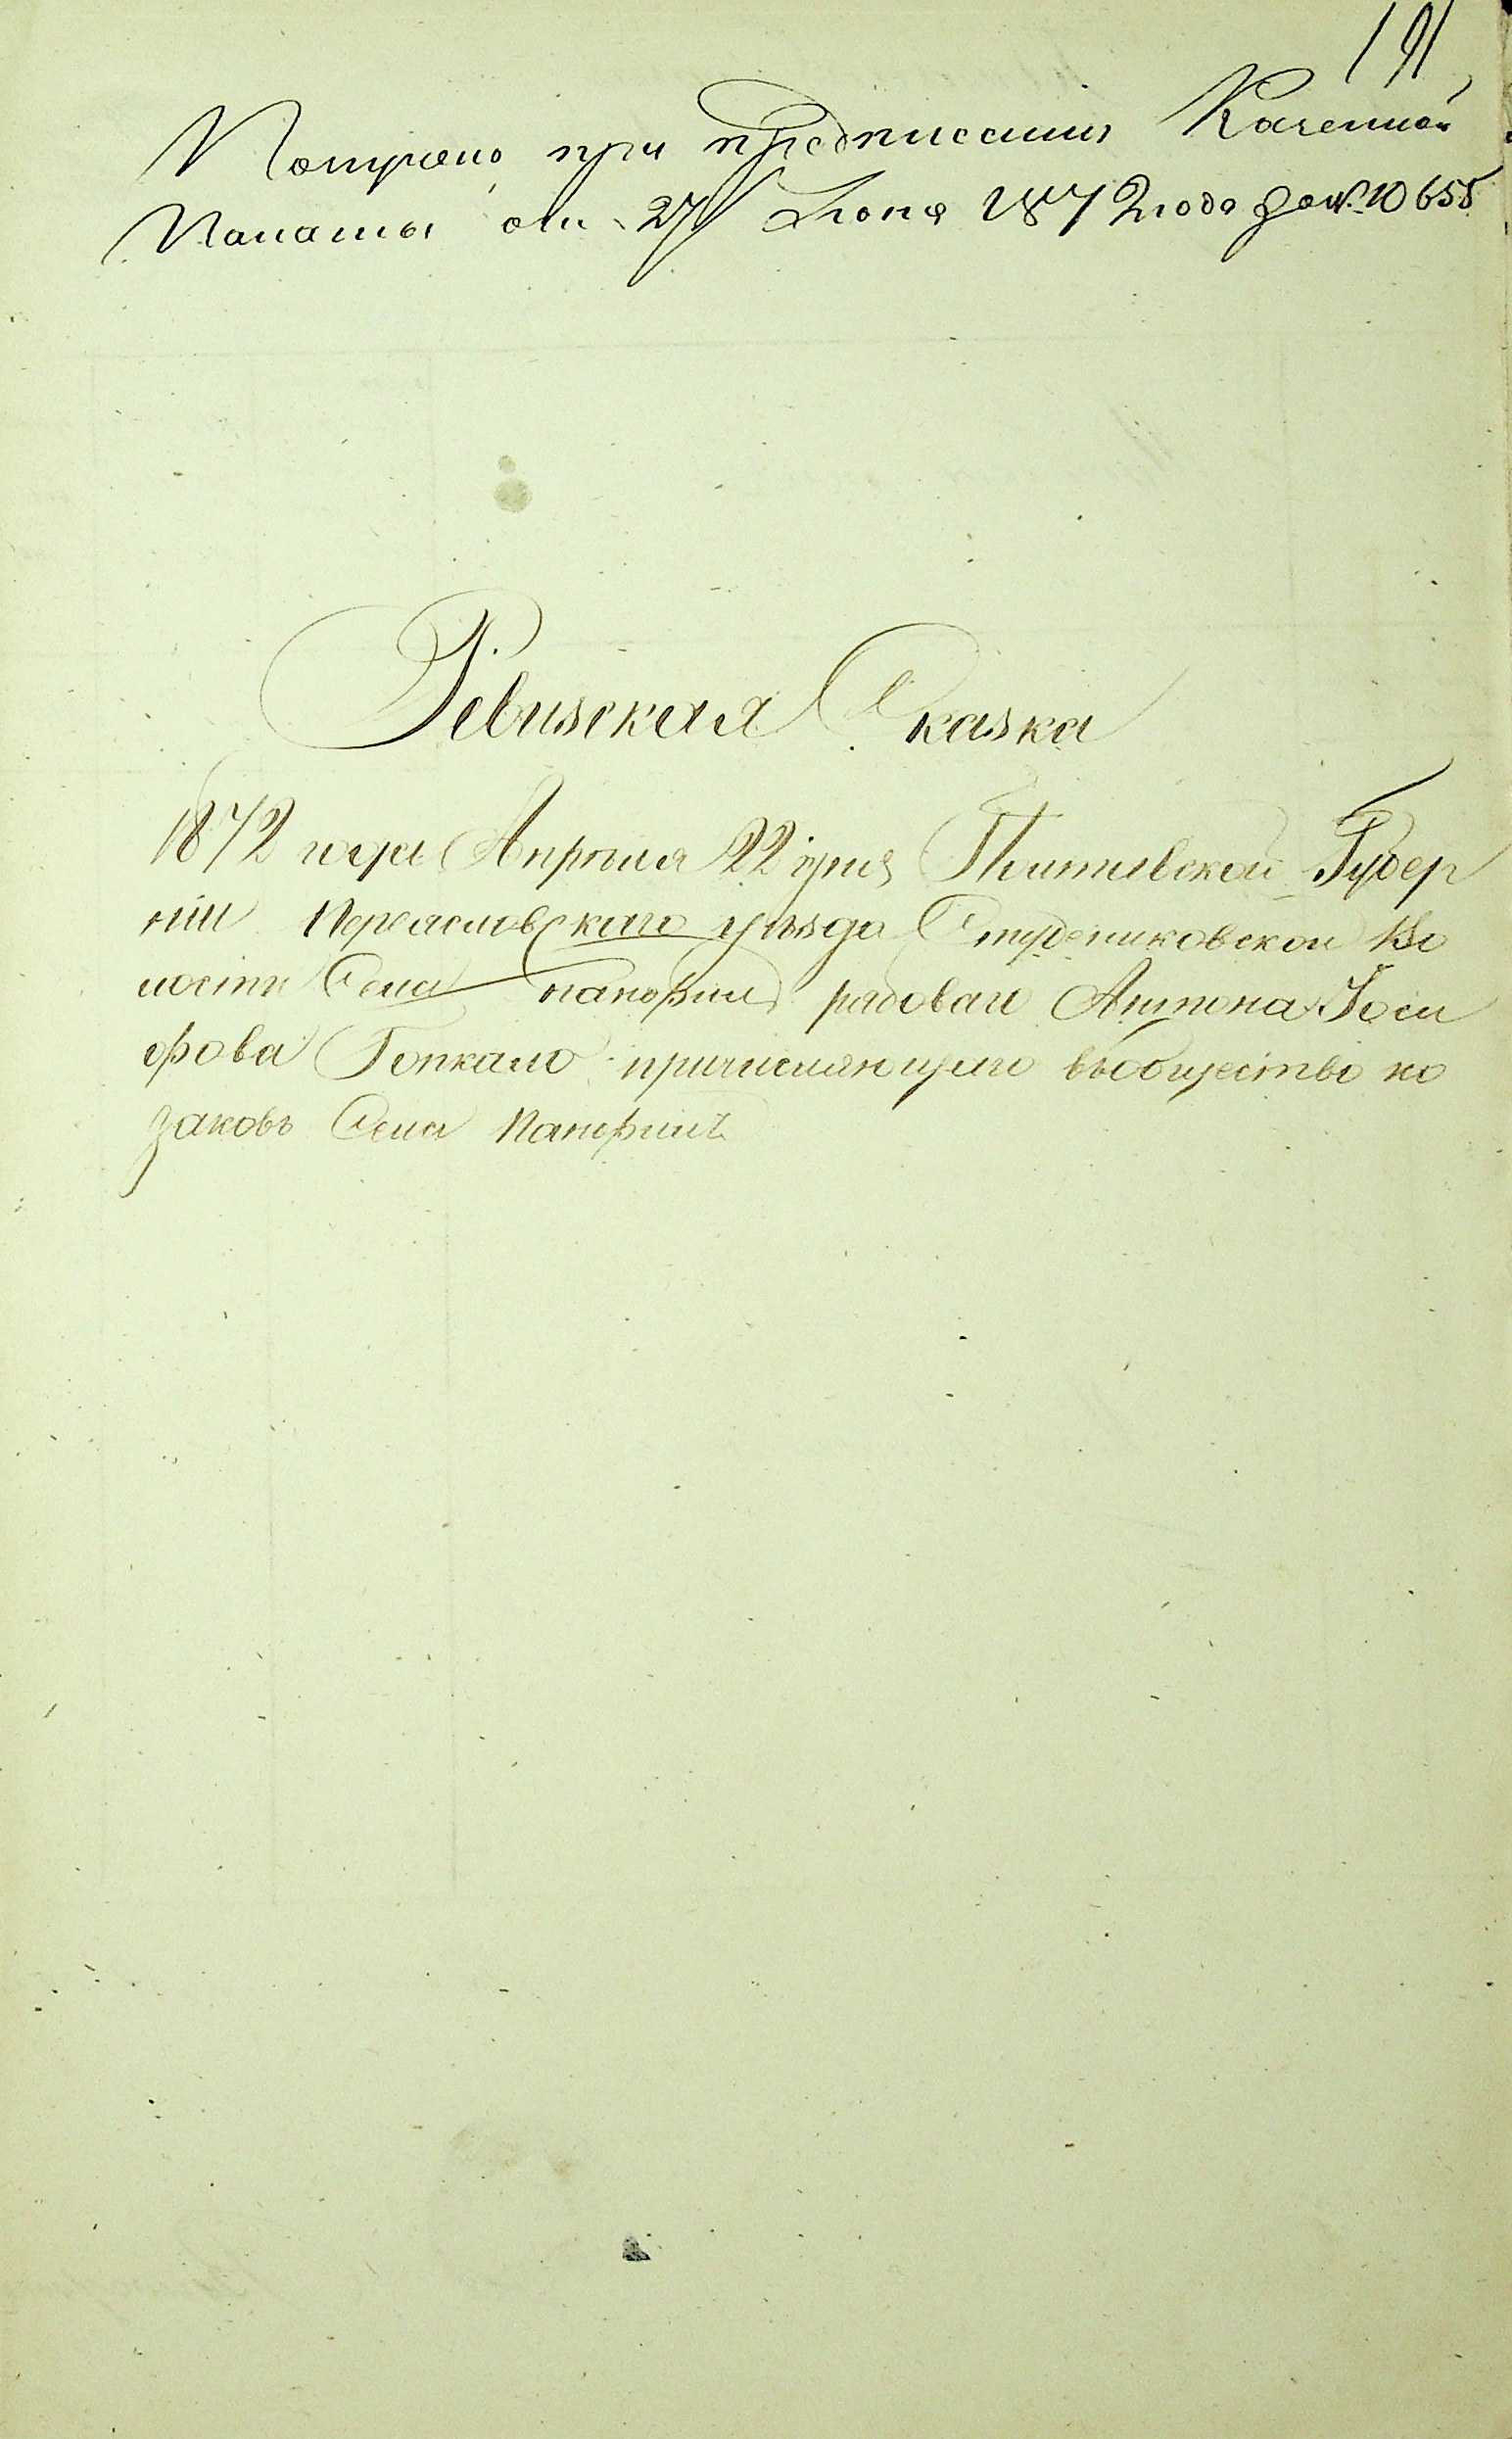 191
Получено при предписании Казенной
Палаты от 27 Июня 1872 года за № 10655
Ревизская Сказка
1872 года Апреля 22 дня Полтавской Губер
нии Переяславского уезда Студениковской Во
лости Села Панфил рядоваго Антона Іоси
фова Гопкало причисляющаго въобщество ко
заковъ Села Панфилъ